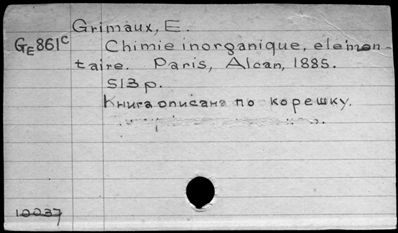 Grimaux, E.
GE861c Chimie inorganique, elemen-
taire. Paris, Alcan, 1885.
513 p.
Книга описана по корешку.
10037